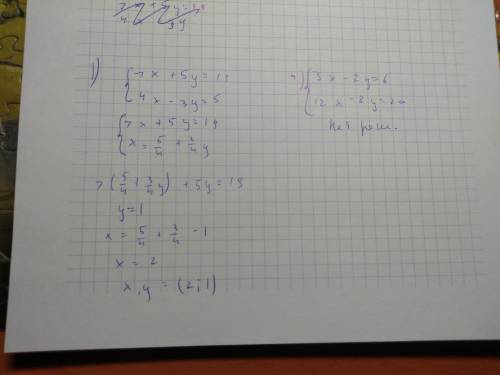 1) { 7x + 5y = 19
4x - 3y = 5
{ 7x + 5y = 19
x = 5/4 + 3/4 y
7 (5/4 + 3/4 y) + 5y = 19
y = 1
x = 5/4 + 3/4 · 1
x = 2
x, y = (2; 1)
{ 3x - 2y = 6
12x - 8y = 20
Нет реш.